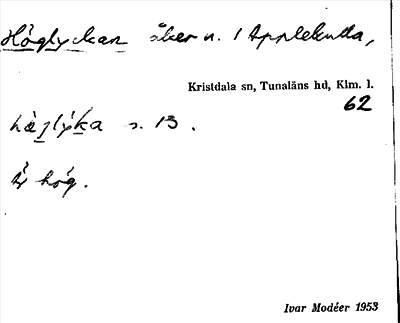 Höglyckan åker n. 1 Applekulla,
Kristdala sn, Tunaläns hd, Klm. l.
62
s. 13.
Är hög.
Ivar Modéer 1953